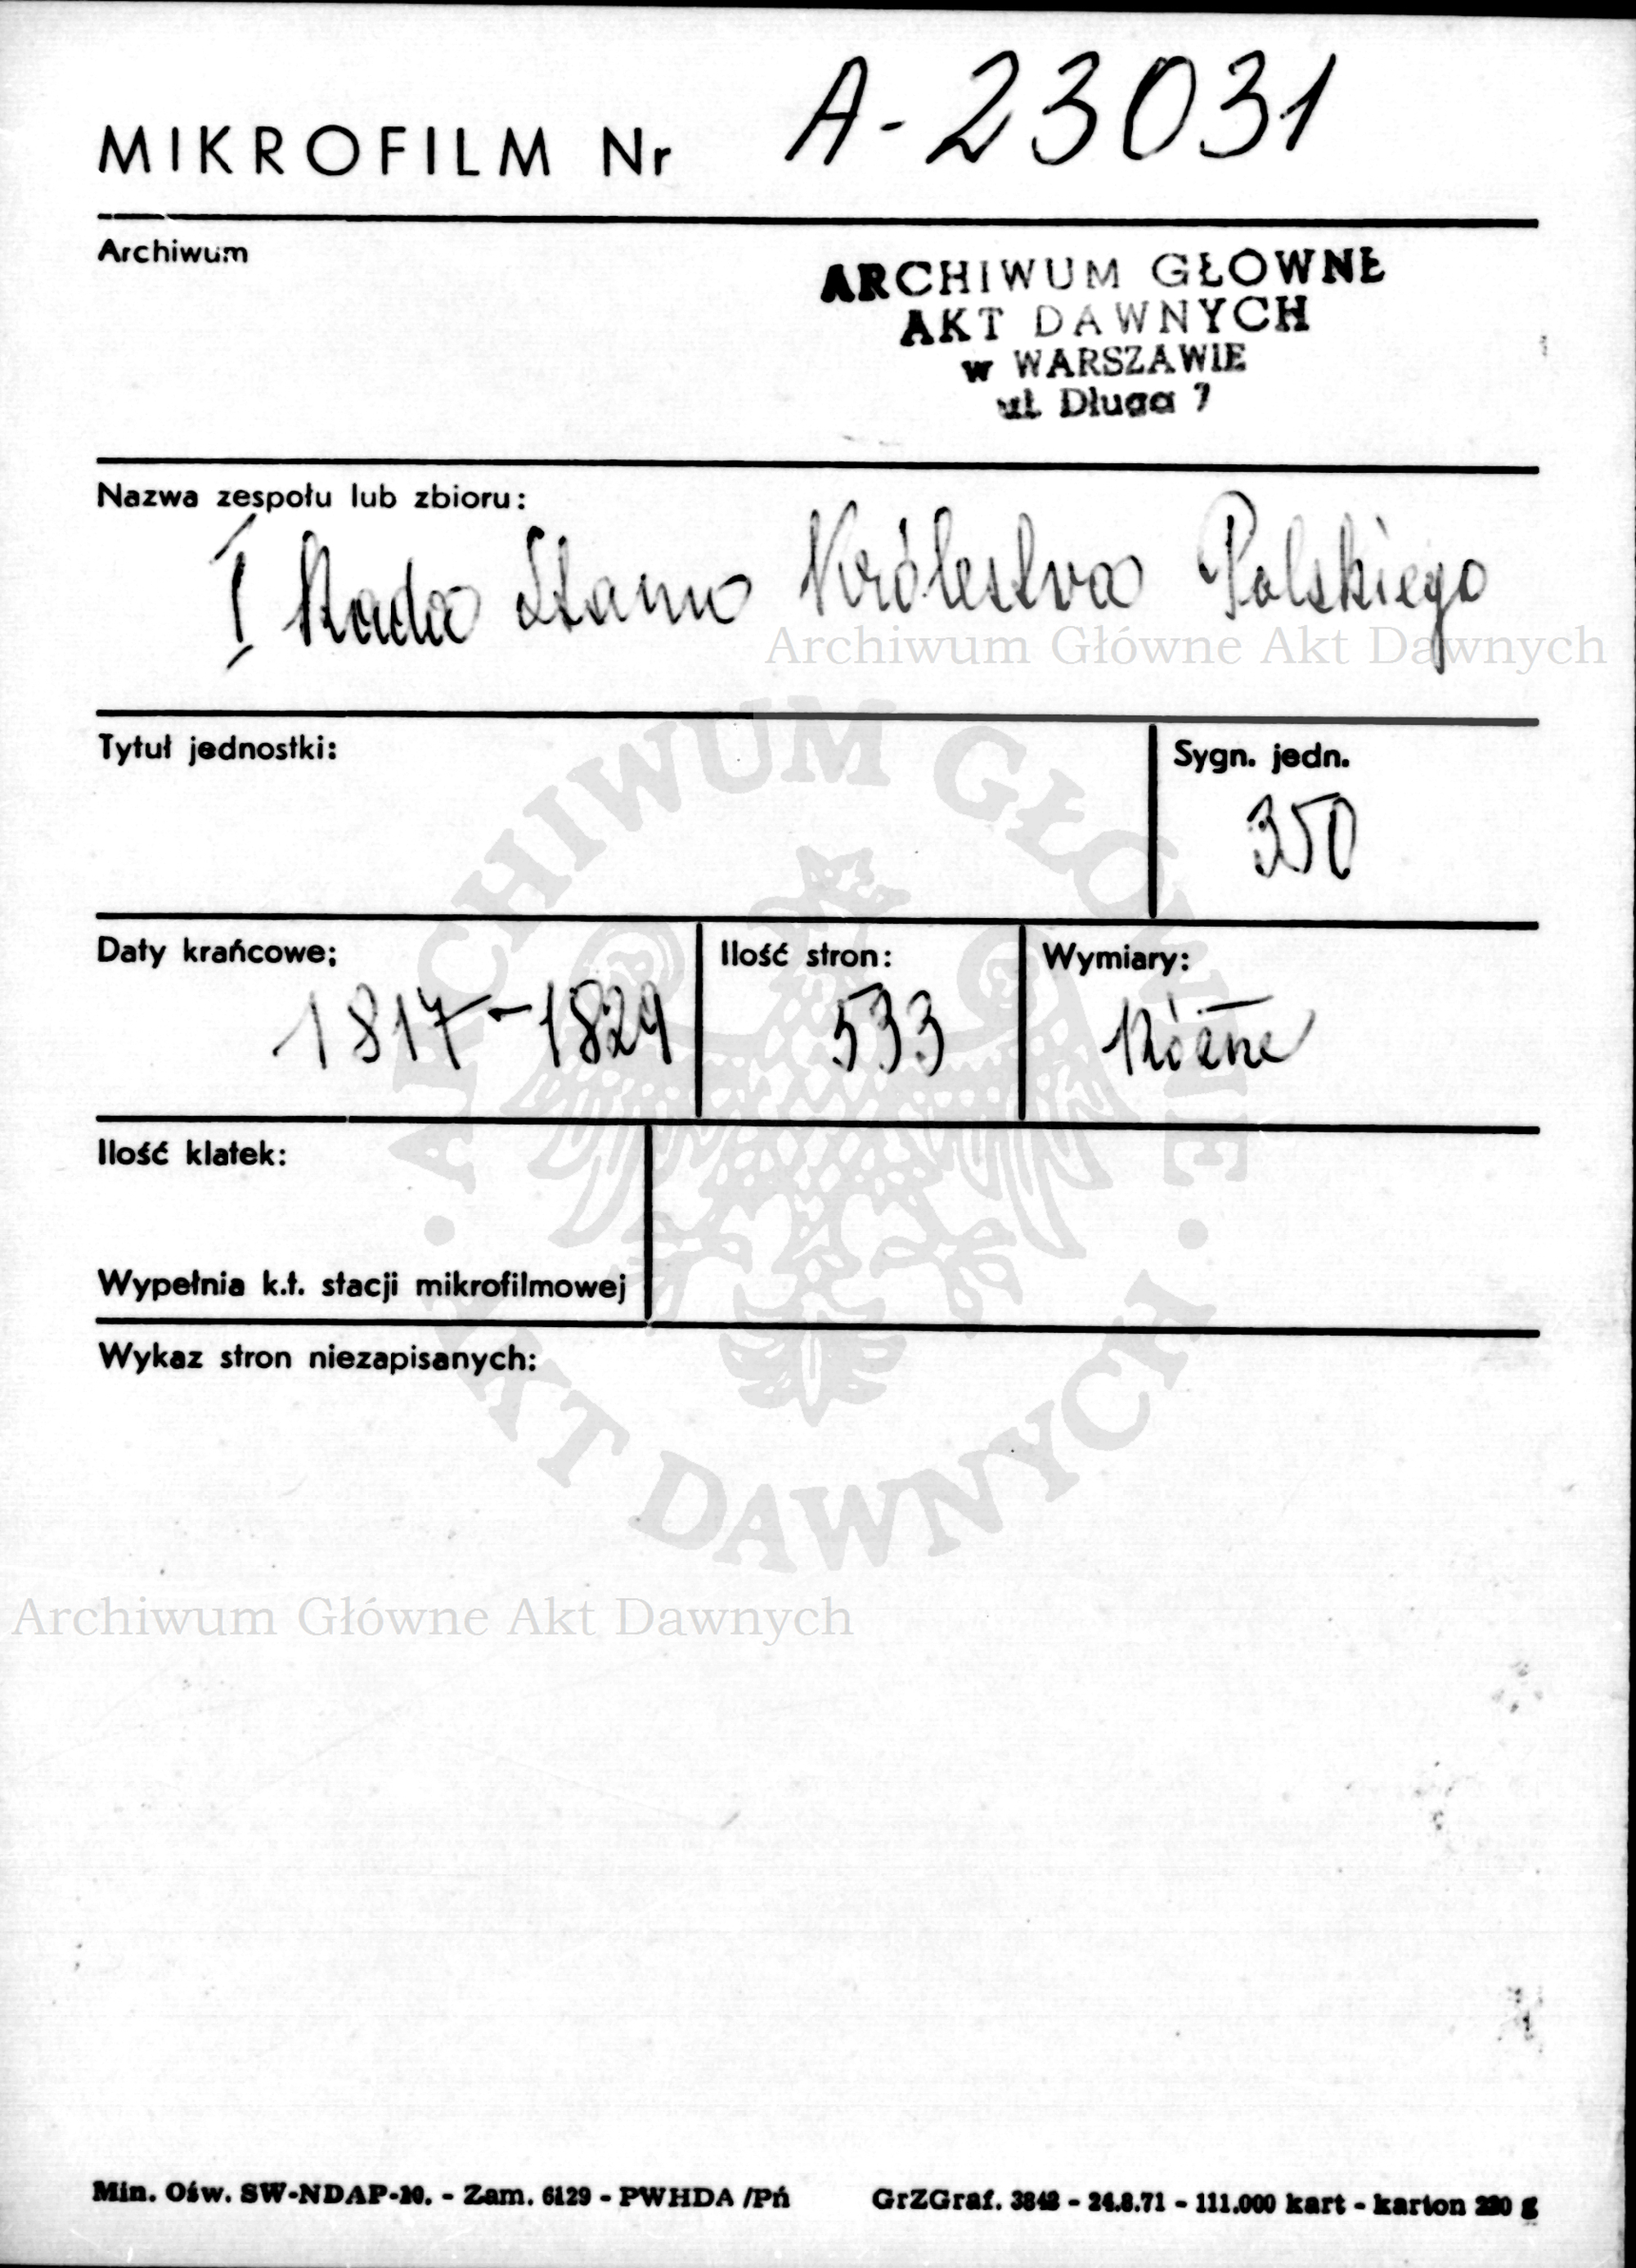 MIKROFILM Nr A-23031
Archiwum
ARCHIWUM GŁÓWNE
AKT DAWNYCH
w WARSZAWIE
ul. Długa 7
Nazwa zespołu lub zbioru:
I Rada Stanu Królestwa Polskiego
Archiwum Główne Akt Dawnych
Tytuł jednostki:
Sygn. jedn.
350
Daty krańcowe;
1817-1829
Ilość stron:
533
Wymiary:
Różne
Ilość klatek:
Wypełnia k.t. stacji mikrofilmowej
Wykaz stron niezapisanych:
ARCHIWUM GŁÓWNE · AKT DAWNYCH ·
Archiwum Główne Akt Dawnych
Min. Ośw. SW-NDAP-10. - Zam. 6129 - PWHDA /Pń
GrZGraf. 3842 - 24.8.71 - 111.000 kart - karton 220 g